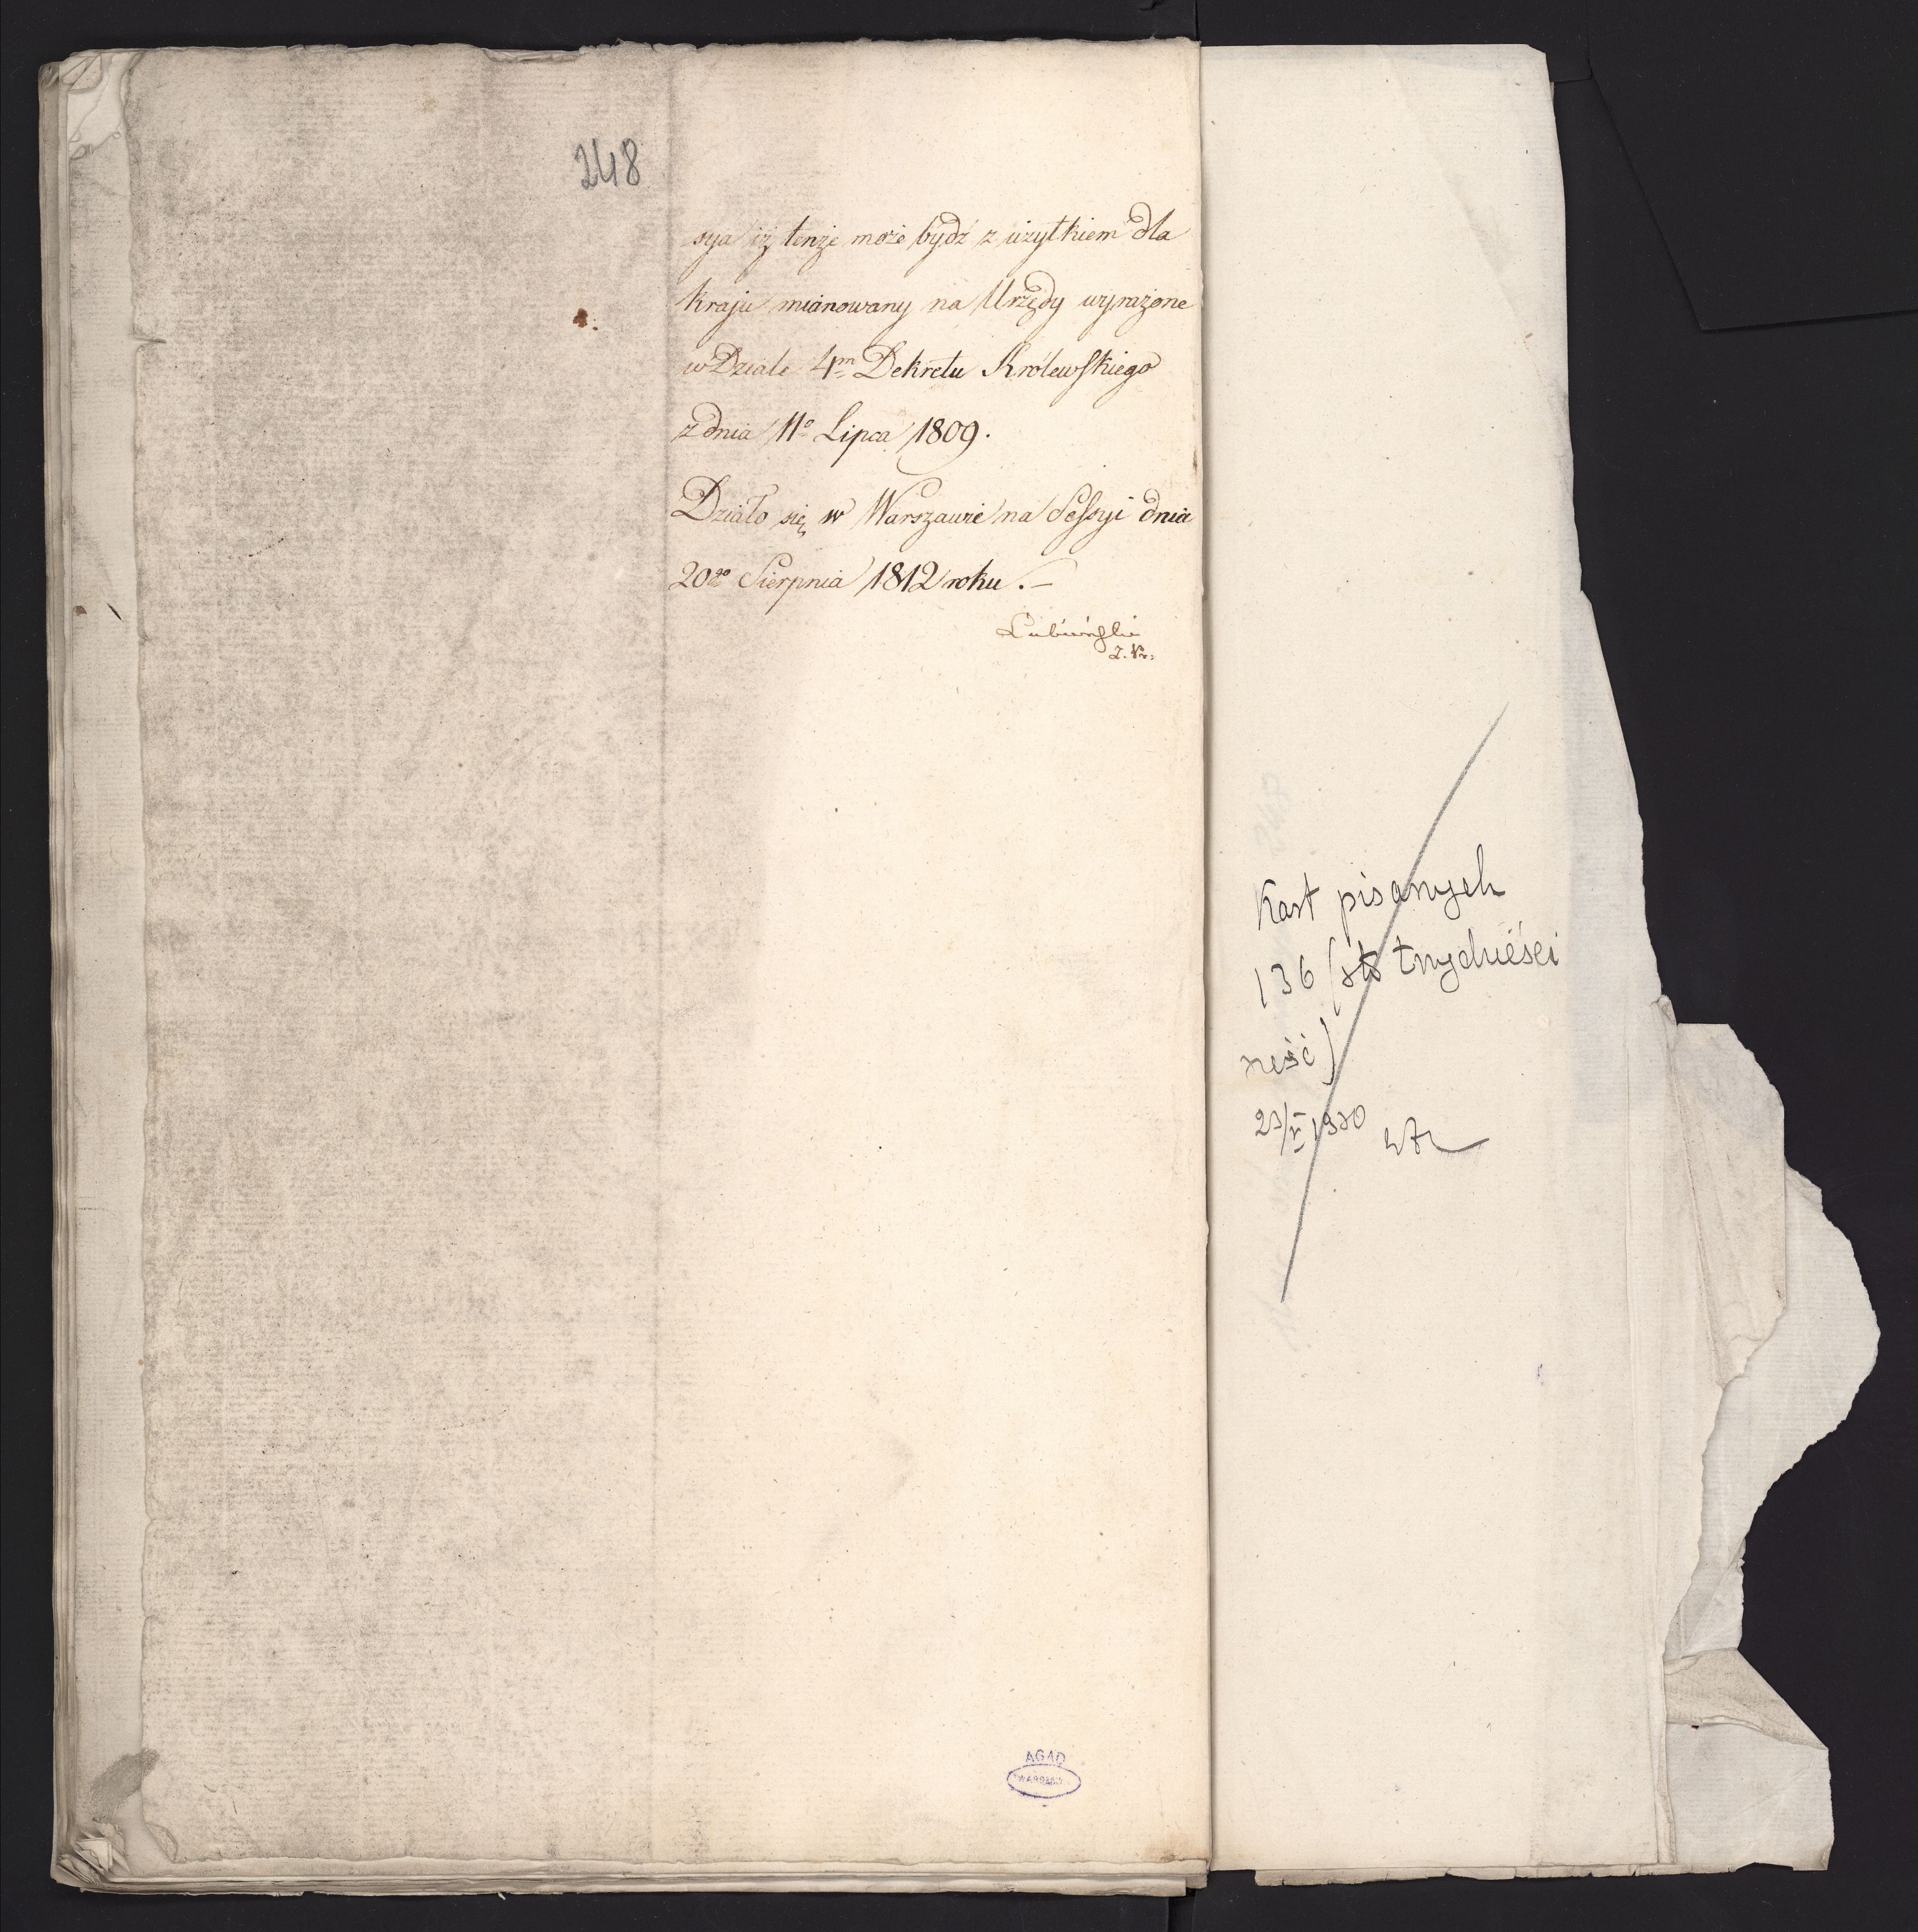 248
sya iż tenże może bydź z użytkiem dla
kraju mianowany na Urzędy wyrażone
w Dziale 4m Dekretu Królewskiego
z dnia 11o Lipca 1809.
Działo się w Warszawie na Sessyi dnia
20go Sierpnia 1812 roku.–
Kart pisanych
136 (sto trzydzieści
sześć)
AGAD
WARSZAWA